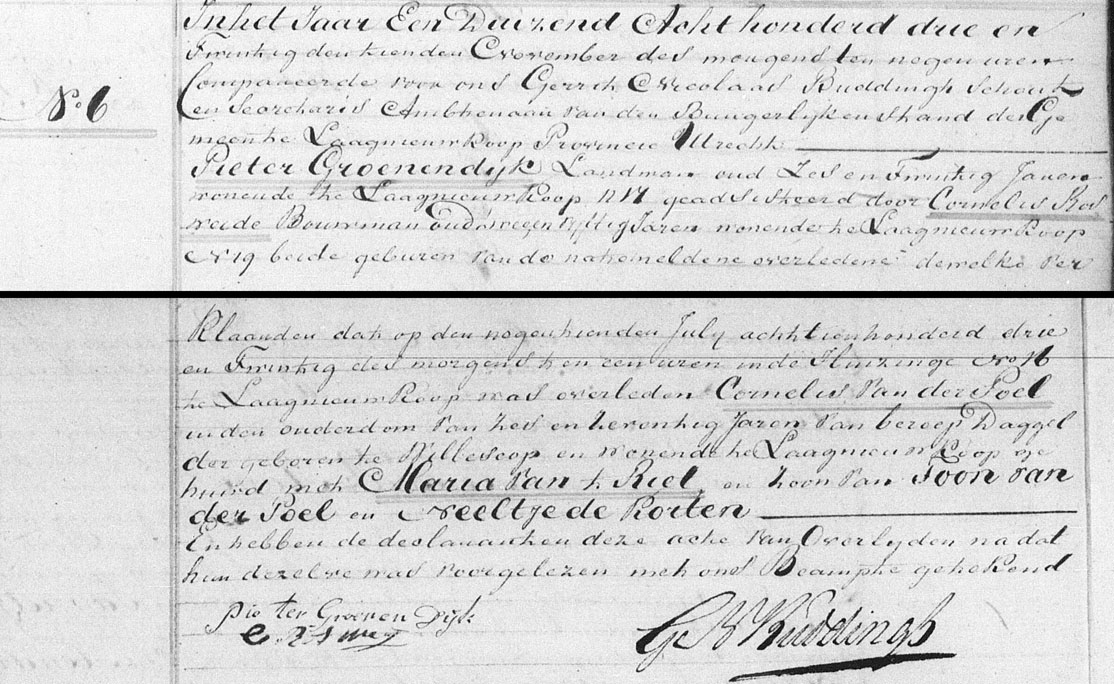 In het Jaar Een Duizend Acht honderd drie en
Twintig den tienden November des morgens ten negen uren
Compareerde voor ons Gerrit Nicolaas Buddingh Schout
en Secretaris Ambtenaar van den Burgerlijken Stand der Ge
No. 6
meente Laagnieuwkoop Provincie Utrecht
Pieter Groenendijk Landman oud Zes en Twintig Jaren
wonende te Laagnieuwkoop N 17 geadsisteerd door Cornelis Ros
weide Bouwman oud en vyftig Jaren wonende te Laagnieuwkoop
No 19 beide geburen van de natemeldene overledene dewelke ver
Klaarden dat op den negentienden July achttienhonderd drie
en Twintig des morgens ten een uren in de Huizinge No 16
te Laagnieuwkoop was overleden Cornelis van der Poel
in den ouderdom van zes en zeventig Jaren van beroep Daggel
der geboren te Willescop en wonende te Laagnieuwkoop ge
huwd met Maria van t Riet en zoon van Toon van
der Poel en Neeltje de Korten
En hebben de declaranten deze acte van Overlyden na dat
hun dezelve was voorgelezen met ons Beampte getekend
Pie ter Groenen Dijk
G N Buddingh